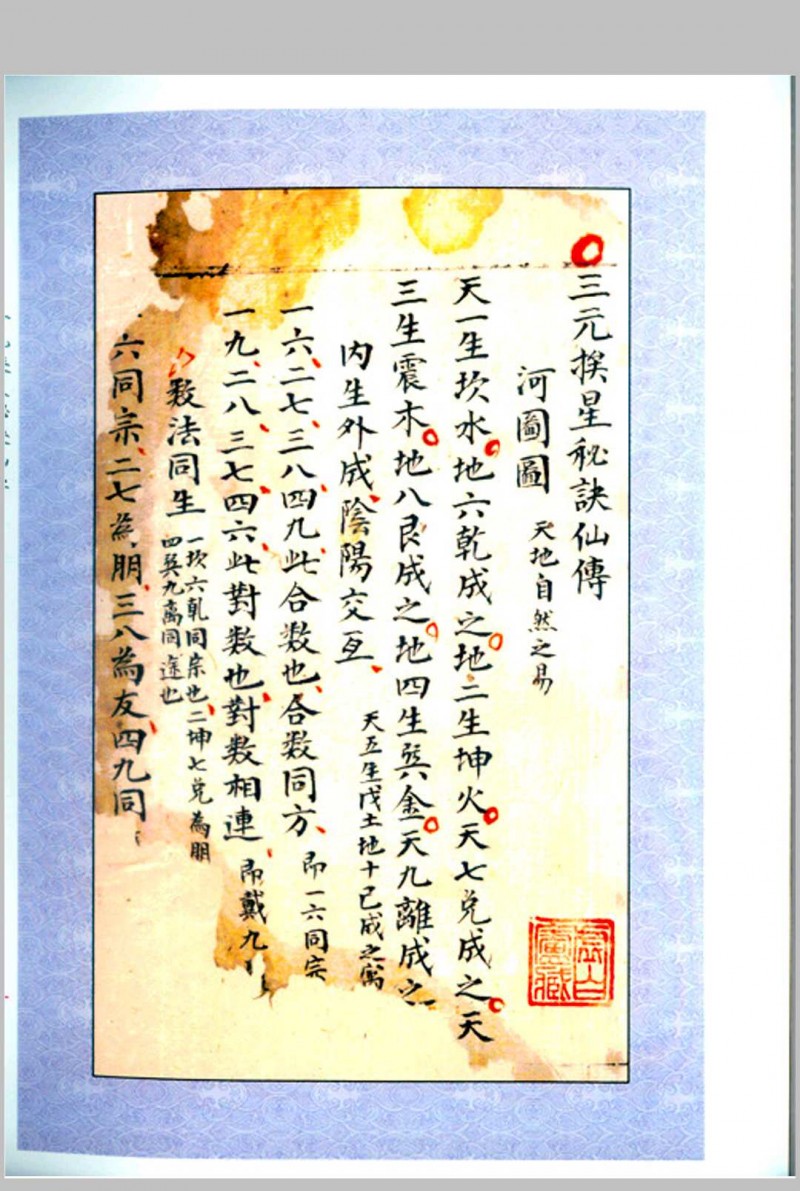 三元挨星秘訣仙傳
河圖圖 天地自然之易
天一生坎水地六乾成之地二生坤火天七兌成之天
三生震木地八艮成之地四生巽金天九離成之
內生外成陰陽交互 天五生戊土地十己成之寓
一六二七三八四九此合数也合数同方 即一六同宗
一九二八三七四六此對数也對数相連 即戴九
数法同生 一坎六乾同宗也二坤七兌為朋
四巽九离同途也
六同宗二七為朋三八為友四九同